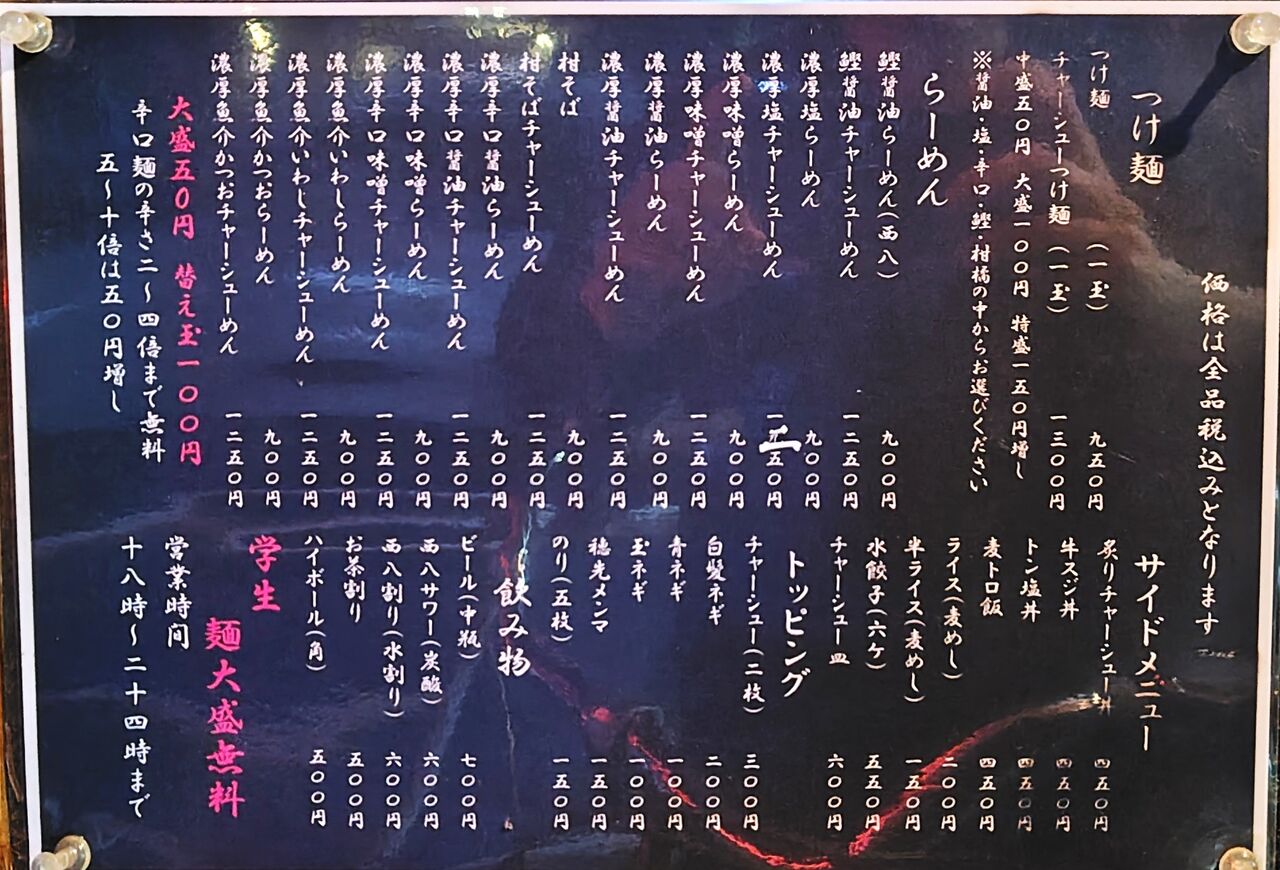 価格は全品税込みとなります
つけ麺
つけ麺 (一玉) 九五〇円
チャーシューつけ麺 (一玉) 一三〇〇円
中盛五〇円 大盛一〇〇円 特盛一五〇円増し
※醤油・塩・辛口・鰹・柑橘の中からお選びください
らーめん
鰹醤油らーめん(西八) 九〇〇円
鰹醤油チャーシューめん 一二五〇円
濃厚塩らーめん 九〇〇円
濃厚塩チャーシューめん 一二五〇円
濃厚味噌らーめん 九〇〇円
濃厚味噌チャーシューめん 一二五〇円
濃厚醤油らーめん 九〇〇円
濃厚醤油チャーシューめん 一二五〇円
柑そば 九〇〇円
柑そばチャーシューめん 一二五〇円
濃厚辛口醤油らーめん 九〇〇円
濃厚辛口醤油チャーシューめん 一二五〇円
濃厚辛口味噌らーめん 九〇〇円
濃厚辛口味噌チャーシューめん 一二五〇円
濃厚魚介いわしらーめん 九〇〇円
濃厚魚介いわしチャーシューめん 一二五〇円
濃厚魚介かつおらーめん 九〇〇円
濃厚魚介かつおチャーシューめん 一二五〇円
大盛五〇円 替え玉一〇〇円
辛口麺の辛さ二〜四倍まで無料
五〜十倍は五〇円増し
サイドメニュー
炙りチャーシュー丼 四五〇円
牛スジ丼 四五〇円
トン塩丼 四五〇円
麦トロ飯 四五〇円
ライス(麦めし) 二〇〇円
半ライス(麦めし) 一五〇円
水餃子(六ケ) 五五〇円
チャーシュー皿 六〇〇円
トッピング
チャーシュー(二枚) 三〇〇円
白髪ネギ 二〇〇円
青ネギ 一〇〇円
玉ネギ 一〇〇円
穂先メンマ 一五〇円
のり(五枚) 一五〇円
飲み物
ビール(中瓶) 七〇〇円
西八サワー(炭酸) 六〇〇円
西八割り(水割り) 六〇〇円
お茶割り 五〇〇円
ハイボール(角) 五〇〇円
学生
麺大盛無料
営業時間
十八時〜二十四時まで